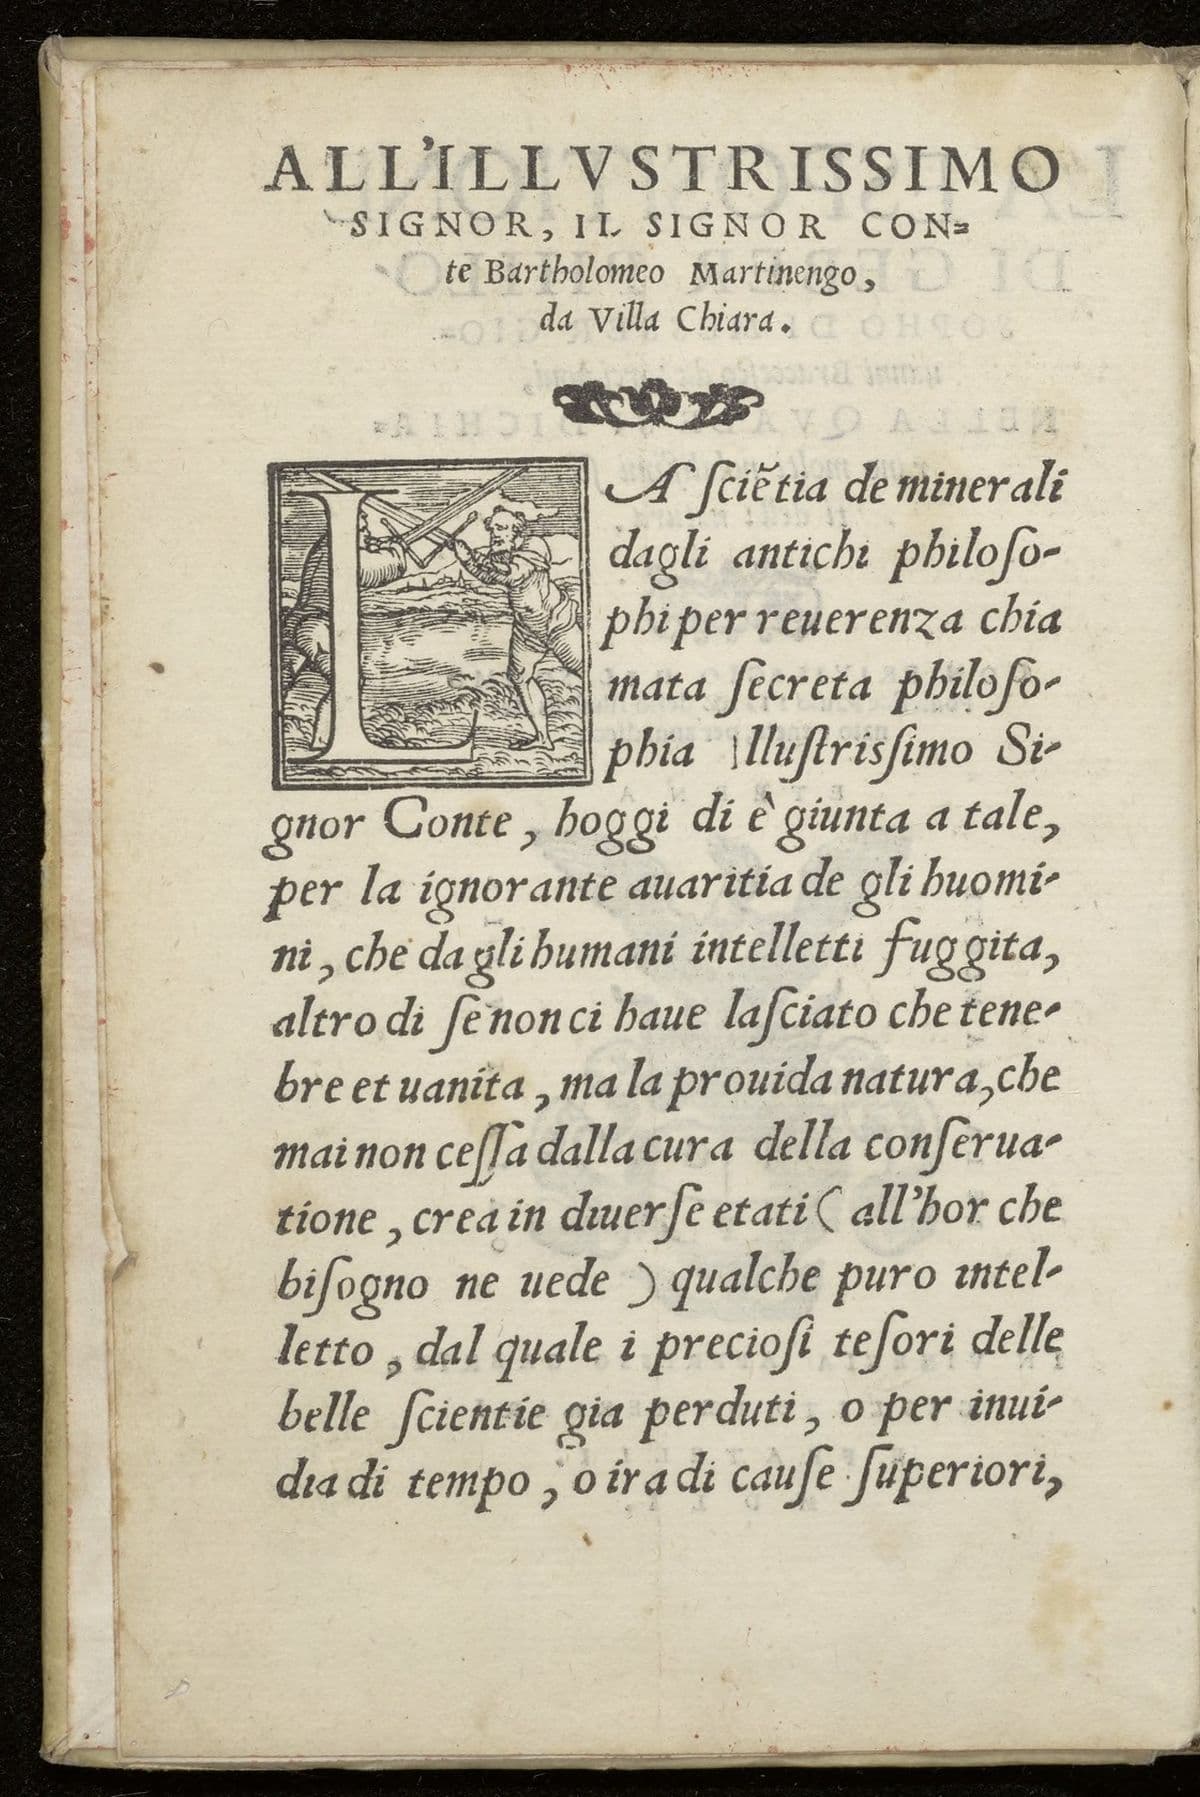 ALL'ILLVSTRISSIMO
SIGNOR, IL SIGNOR CON=
te Bartholomeo Martinengo,
da Villa Chiara.
LA ſciẽtia de minerali
dagli antichi philoſo-
phi per reuerenza chia
mata ſecreta philoſo-
phia Illuſtriſſimo Si-
gnor Conte, hoggi di è giunta a tale,
per la ignorante auaritia de gli huomi-
ni, che da gli humani intelletti fuggita,
altro di ſe non ci haue laſciato che tene-
bre et uanita, ma la prouida natura, che
mai non ceſſa dalla cura della conſerua-
tione, crea in diuerſe etati ( all'hor che
biſogno ne uede ) qualche puro intel-
letto, dal quale i precioſi teſori delle
belle ſcientie gia perduti, o per inui-
dia di tempo, o ira di cauſe ſuperiori,